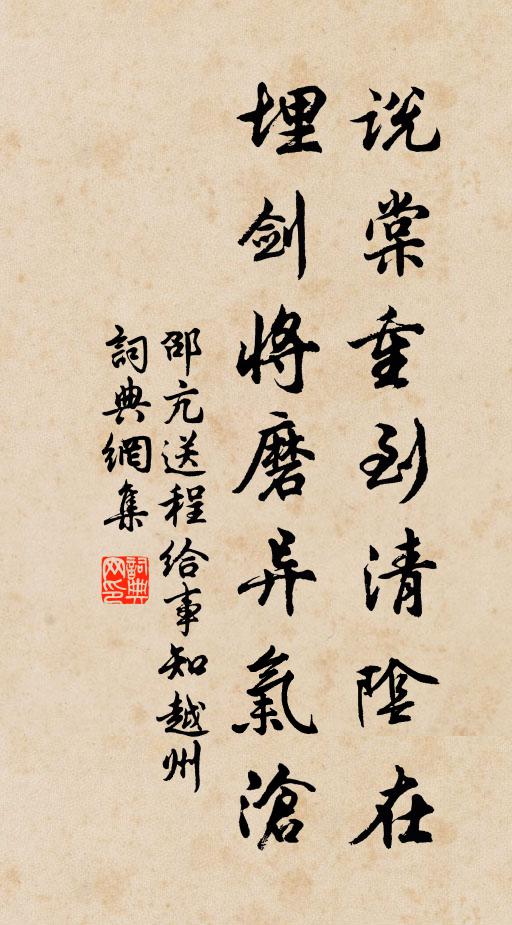 说棠重到清陰在
埋剑将磨异氣滄
邵亢送程给事知越州
詞典網集
詞典网印